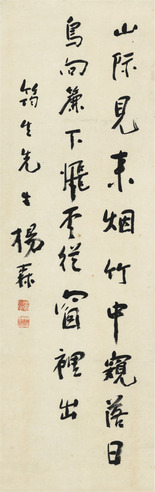 山際見来烟竹中窺落日
鳥向簾下飛雲從窗裡出
筠生先生 楊森